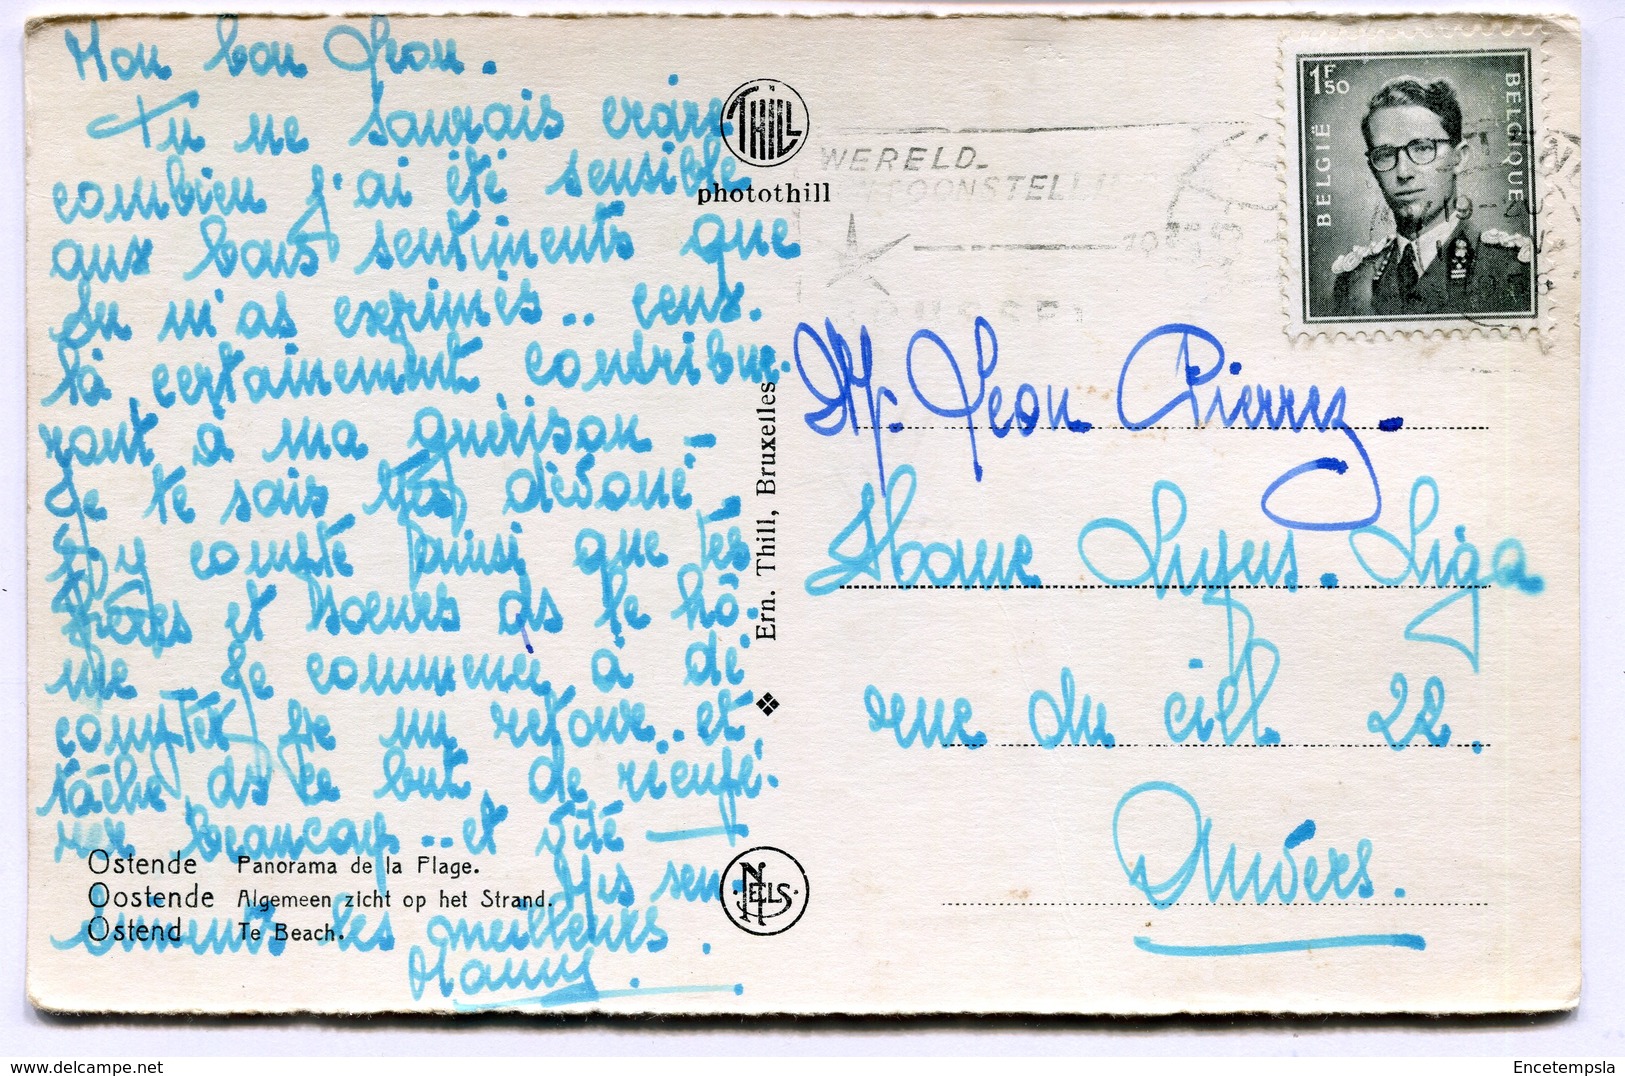 Mon bon Jean.
Tu ne saurais croire
combien j'ai été sensible
aux bons sentiments que
tu m'as exprimés.. ceux.
là, certainement contribue.
ront à ma guérison -
Je te sais très dévoué -
J'y compte ainsi que tes
frères et soeurs ds le hô.
me. Je commence à dé
compter pr un retour.. et,
tâche, ds ce but, de
beaucoup.. et vite
Mes sen.
timents les meilleurs.
Nanny.
THILL
photothill
Ern. Thill, Bruxelles
Ostende Panorama de la Plage.
Oostende Algemeen zicht op het Strand.
Ostend Te Beach.
NELS
WERELD-
TOONSTELLI
19-20
1F50
BELGIË
BELGIQUE
Mr. Jean Pierrez.
Home Liga
rue du ciel 22.
Anvers.
Encetempsla